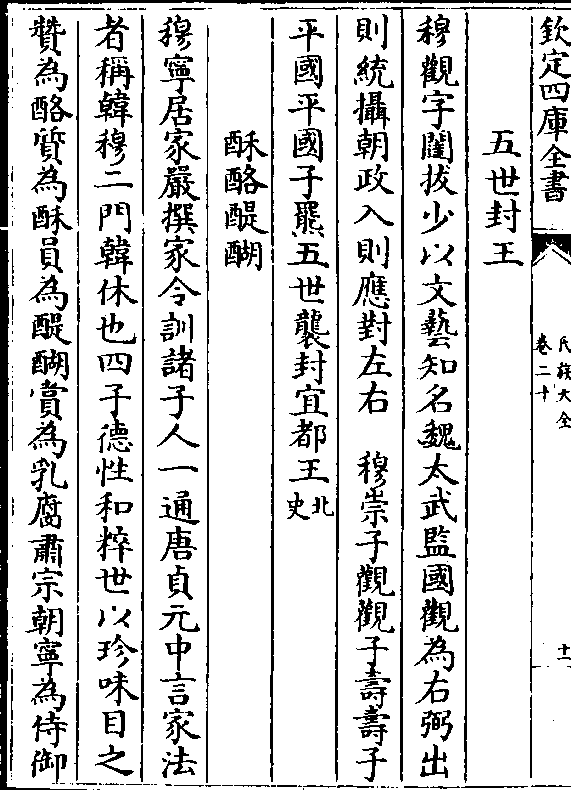 欽定四庫全書
氏族大全
卷二十
十一
五世封王
穆觀字闥拔少以文藝知名魏太武監國觀為右弼出
則統攝朝政入則應對左右　穆崇子觀觀子壽壽子
平國平國子羆五世襲封宜都王北史
酥酪醍醐
穆寧居家嚴撰家令訓諸子人一通唐貞元中言家法
者稱韓穆二門韓休也四子德性和粹世以珍味目之
贊為酪質為酥員為醍醐賞為乳腐肅宗朝寧為侍御